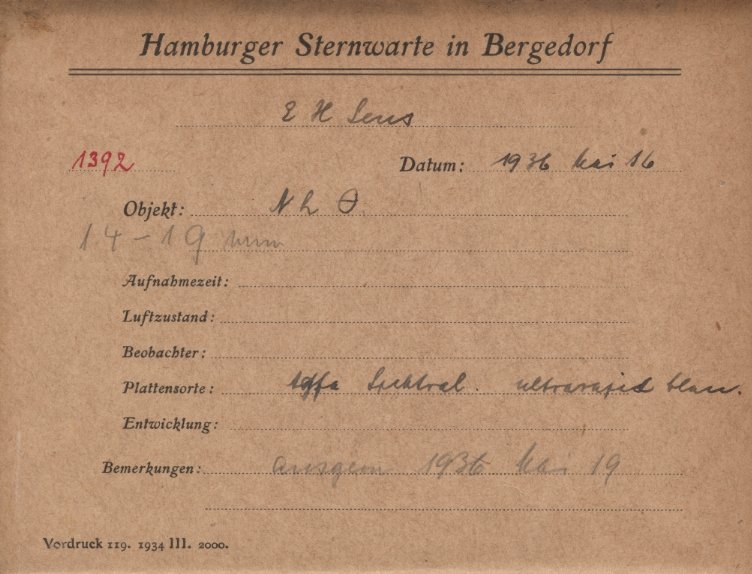 Hamburger Sternwarte in Bergedorf
E H Sens
1392 Datum: 1936 Mai 16
Objekt: N L
14-19 mm
Aufnahmezeit:
Luftzustand:
Beobachter:
Plattensorte: Agfa Spektral. ultrarapid blau.
Entwicklung:
Bemerkungen: ausgem 1936 Mai 19
Vordruck 119. 1934 III. 2000.